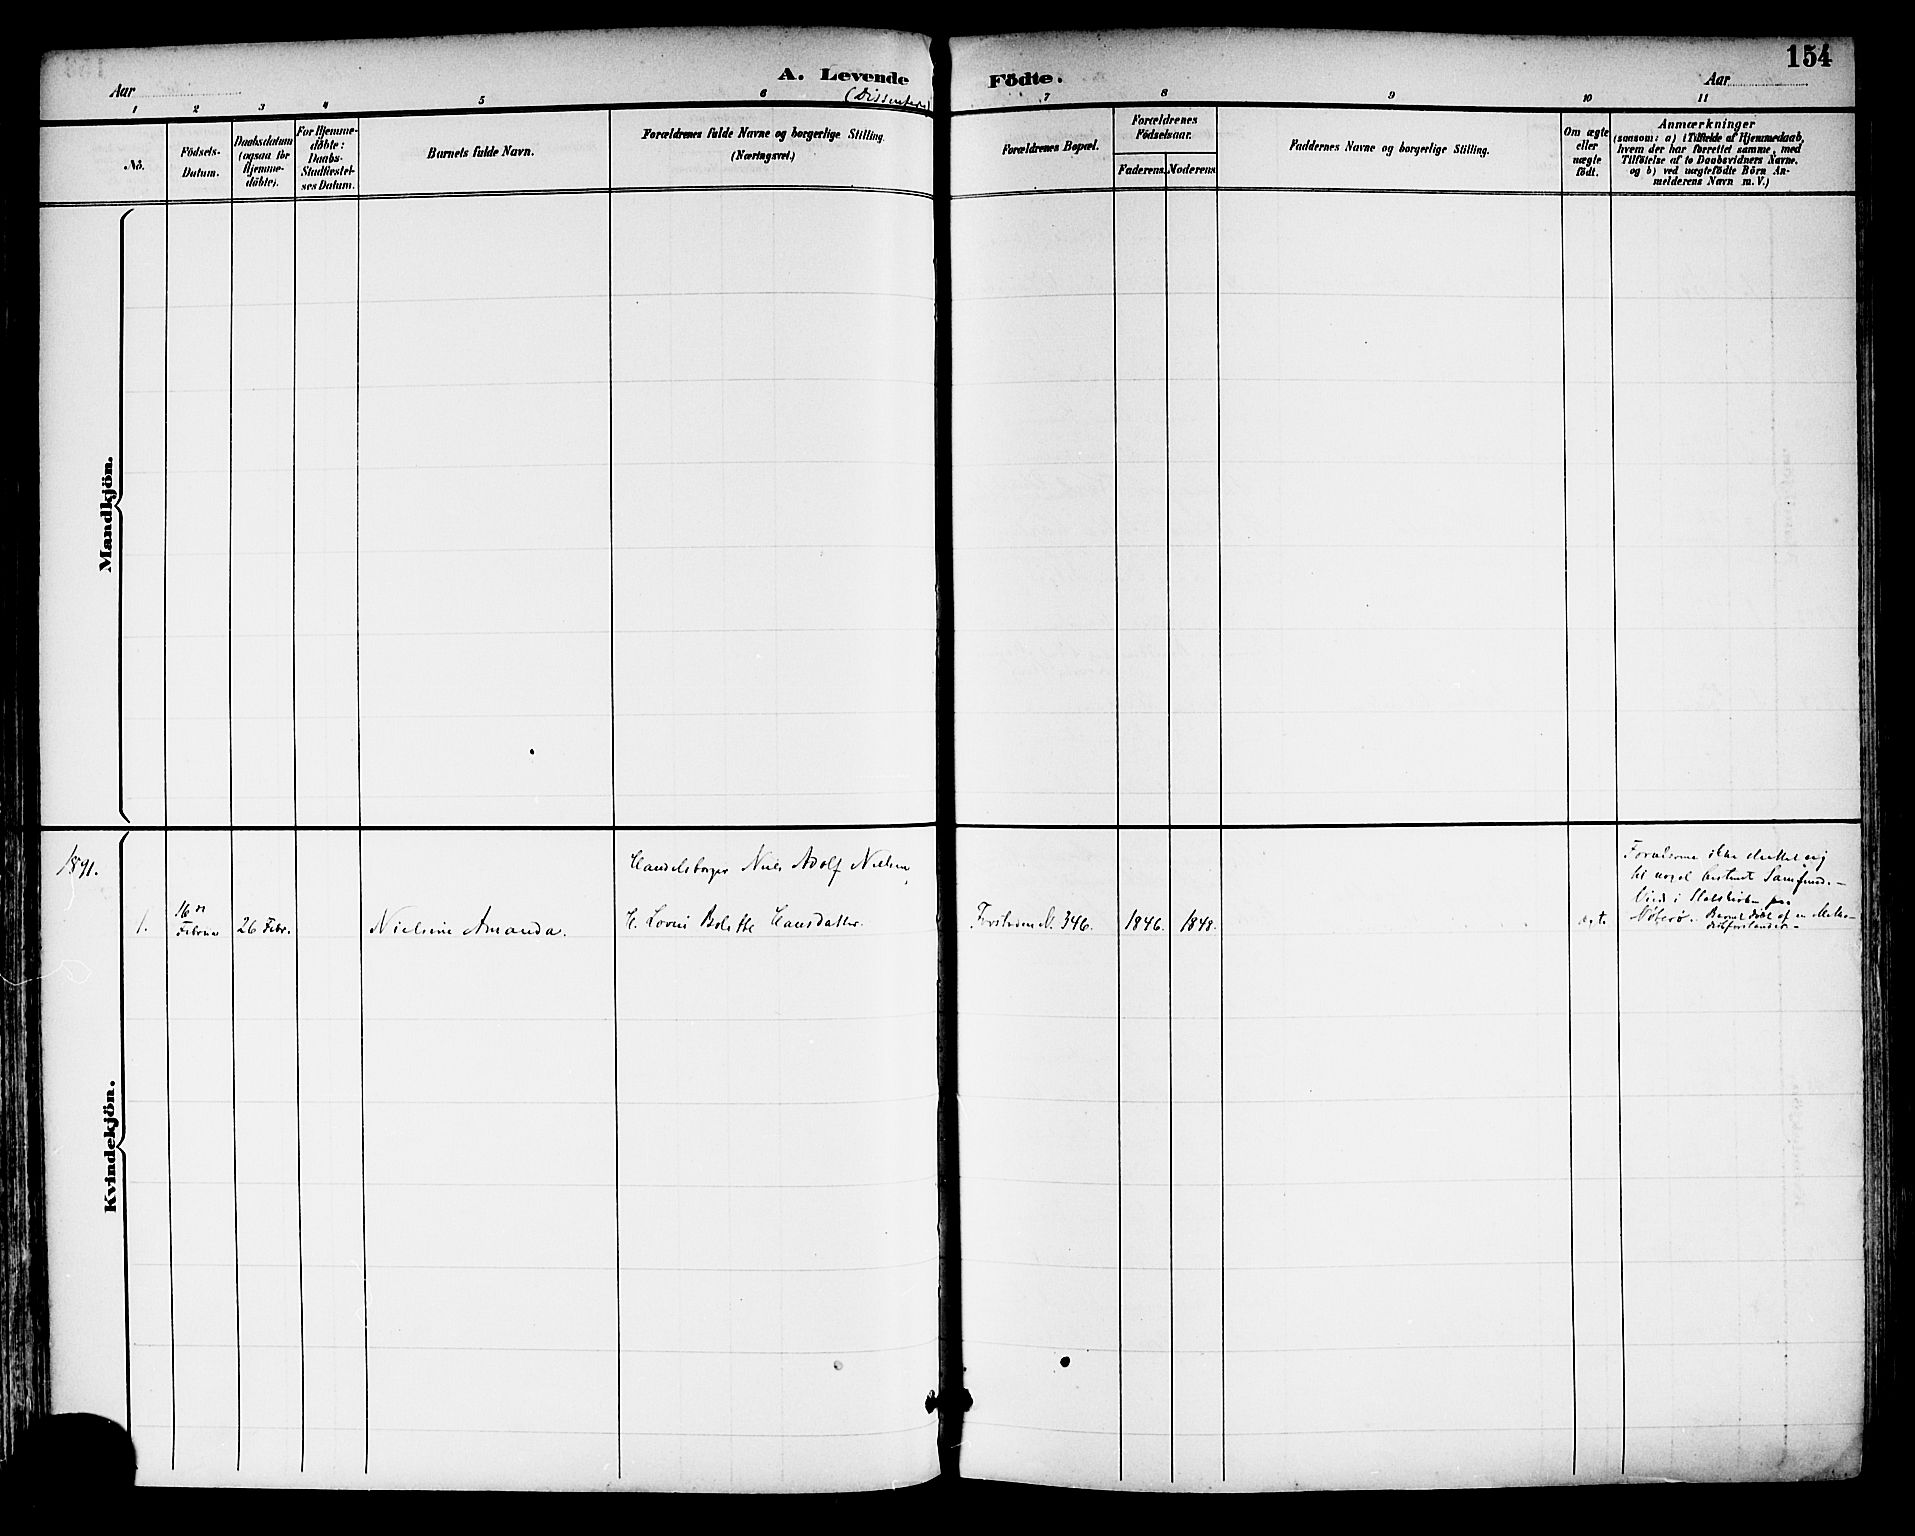 154
A. Levende Födte.
(Dissentere)
Aar
Aar
1 2 3 4 5 6 7 8 9 10 11
No.
Födsels-
Datum.
Daabsdatum
(ogsaa for
Hjemme-
döbte).
For Hjemme-
döbte:
Daabs-
Stadfæstel-
ses Datum.
Barnets fulde Navn.
Forældrenes fulde Navne og borgerlige Stilling.
(Næringsvei.)
Forældrenes Bopæl.
Forældrenes
Födselsaar.
Faderens.
Moderens
Faddernes Navne og borgerlige Stilling.
Om ægte
eller
uægte
födt.
Anmærkninger
(saasom: a) i Tilfælde af Hjemmedaab,
hvem der har forrettet samme, med
Tilföielse af to Daabsvidners Navne.
og b) ved uægtefödte Börn An-
melderens Navn m. V.)
Mandkjön.
Kvindekjön.
1891.
1.
16de
Februar
26 Febr.
Nielsine Amanda.
Handelsborger Niels Adolf Nielsen
H. Lovise Bolette Hansdatter.
Farstaden N. 346.
1846.
1848.
ægte
Forældrene ikke sluttet sig
til noget bestemt Samfund. –
Viede i Statskirken paa
Nöterö. Barnet döbt af en Metho-
distforstander. –